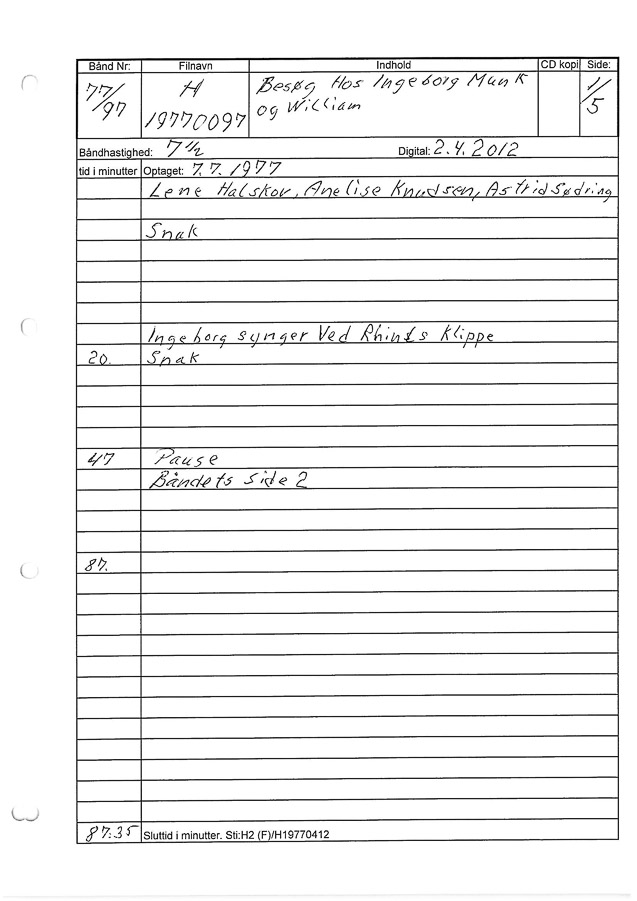 Bånd Nr: Filnavn Indhold CD kopi Side:
77/97 H 19770097 Besøg Hos Ingeborg Munk og William 1/5
Båndhastighed: 7 1/2 Digital: 2.4.2012
tid i minutter Optaget: 7.7.1977
Lene Halskov, Anelise Knudsen, Astrid Sødring
Snak
Ingeborg synger Ved Rhinds Klippe
20. Snak
47 Pause
Båndets side 2
87.
87:35 Sluttid i minutter. Sti:H2 (F)/H19770412